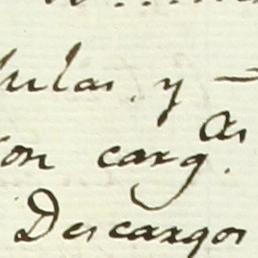 ulas. y
con carg.os
Descargos